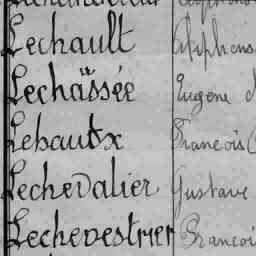 Lechault Alphons
Lechässée Eugene
Lehautx Francois
Lechevalier Gustave
Lechevestrier Francoi